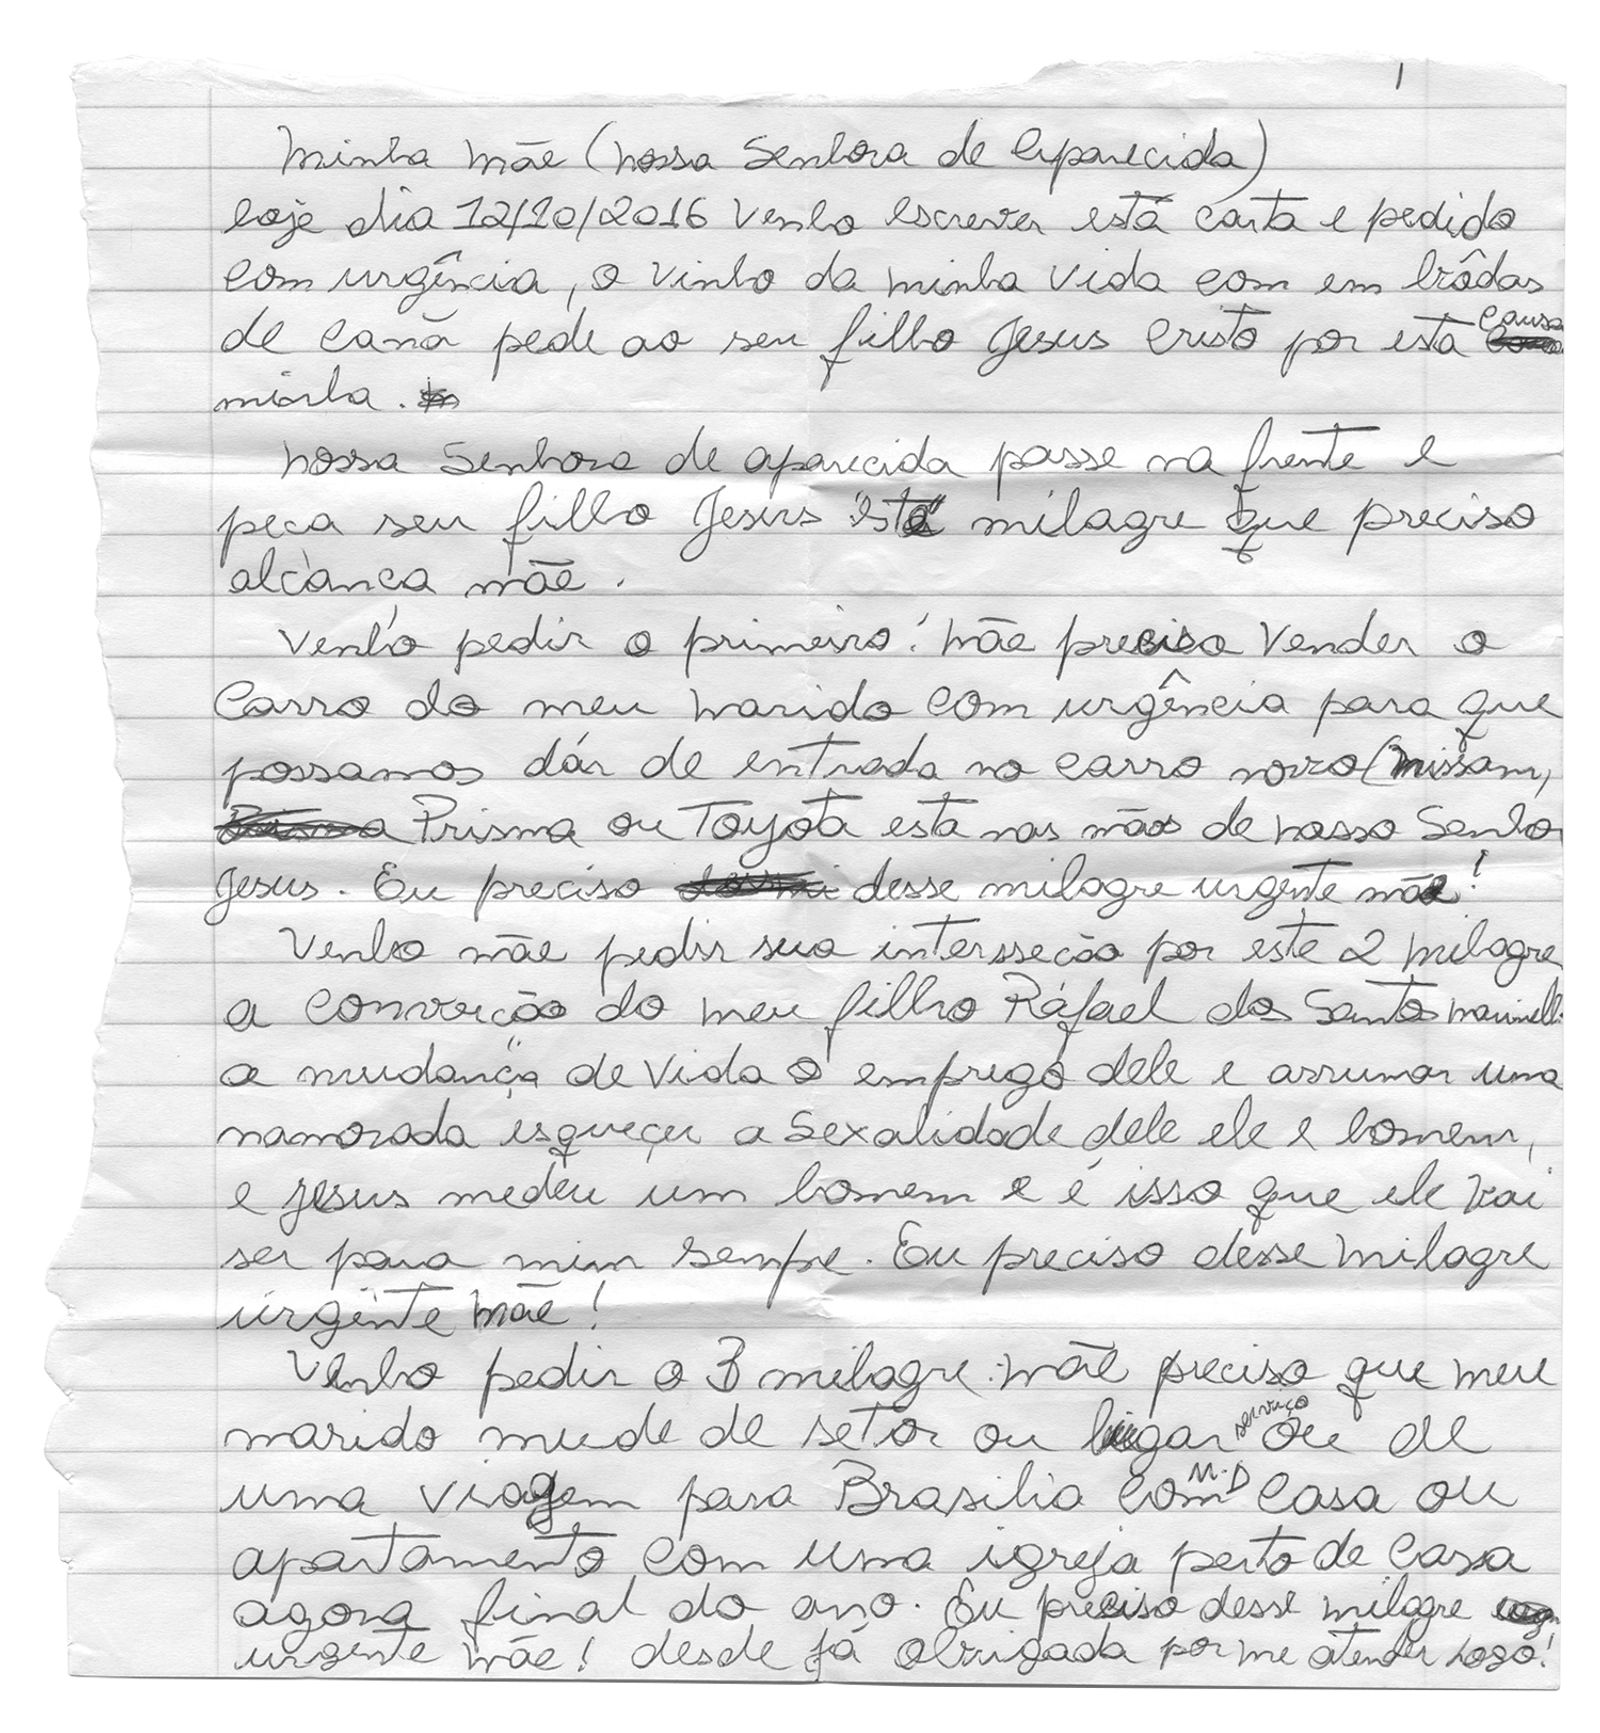 1
Minha Mãe (Nossa Senhora de Aparecida)
hoje dia 12/10/2016 Venho escrever está carta e pedido
com urgência, o vinho da minha vida com em bôdas
de Canã pede ao seu filho Jesus Cristo por esta causa
minha.
Nossa Senhora de aparecida passe na frente e
peca seu filho Jesus "este" milagre que preciso
alcança mãe.
Venho pedir o primeiro! Mãe preciso Vender o
Carro do meu marido com urgência para que
possamos dár de entrada no carro novo (Nissam,
Prisma ou Toyota esta nas mãos de nosso Senho
Jesus. Eu preciso desse milagre urgente mãe!
Venho mãe pedir sua intersseção por este 2 milagre
a converção do meu filho Ráfael dos Santos
a mudança de vida o emprego dele e arrumar uma
namorada esqueçer a Sexalidade dele ele e homem,
e Jesus medeu um homem e é isso que ele vai
ser para mim sempre. Eu preciso desse milagre
urgênte Mãe!
Venho pedir o 3 milagre. Mãe preciso que meu
marido mude de setor ou lugar serviço ou de
uma viagem para Brasilia com M.D casa ou
apartamento com uma igreja perto de casa
agora final do ano. Eu preciso desse milagre
urgente Mãe! desde já obrigada por me atender logo!